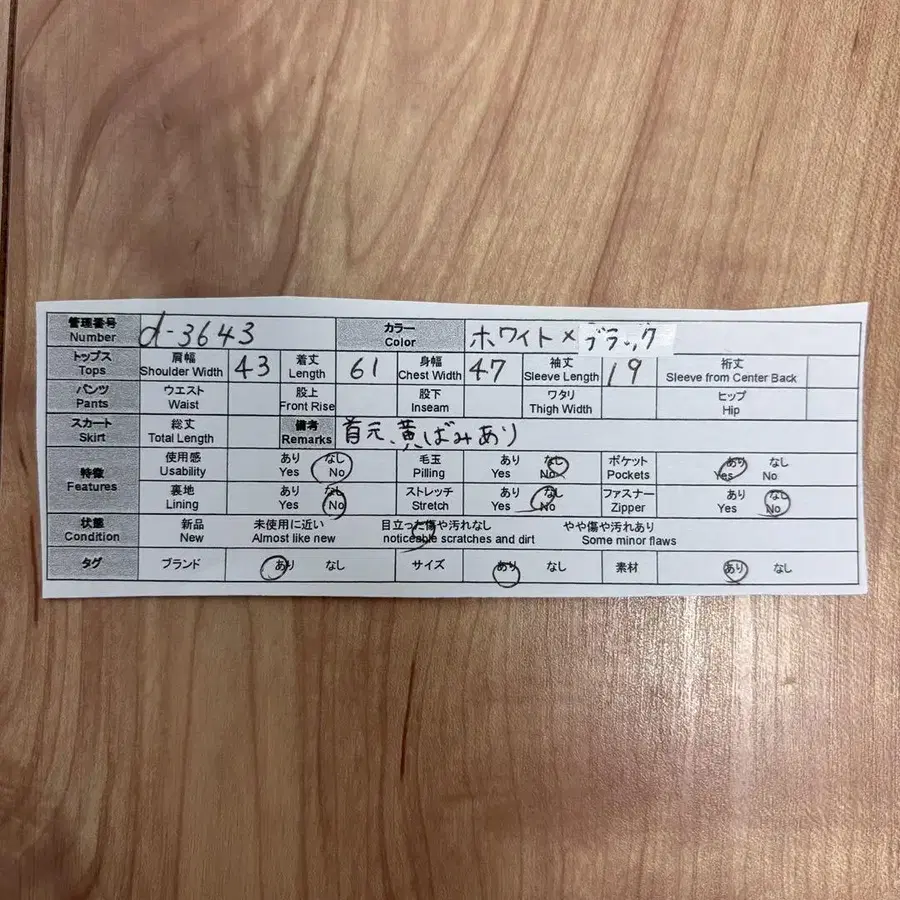 管理番号 d-3643 カラー ホワイト×ブラック
Number Color
トップス 肩幅 43 着丈 61 身幅 47 袖丈 19 裄丈
Tops Shoulder Width Length Chest Width Sleeve Length Sleeve from Center Back
パンツ ウエスト 股上 股下 ワタリ ヒップ
Pants Waist Front Rise Inseam Thigh Width Hip
スカート 総丈 備考 首元、黄ばみあり
Skirt Total Length Remarks
特徴 使用感 あり なし 毛玉 あり なし ポケット あり なし
Features Usability Yes No Pilling Yes No Pockets Yes No
裏地 あり なし ストレッチ あり なし ファスナー あり なし
Lining Yes No Stretch Yes No Zipper Yes No
状態 新品 未使用に近い 目立った傷や汚れなし やや傷や汚れあり
Condition New Almost like new noticeable scratches and dirt Some minor flaws
タグ ブランド あり なし サイズ あり なし 素材 あり なし